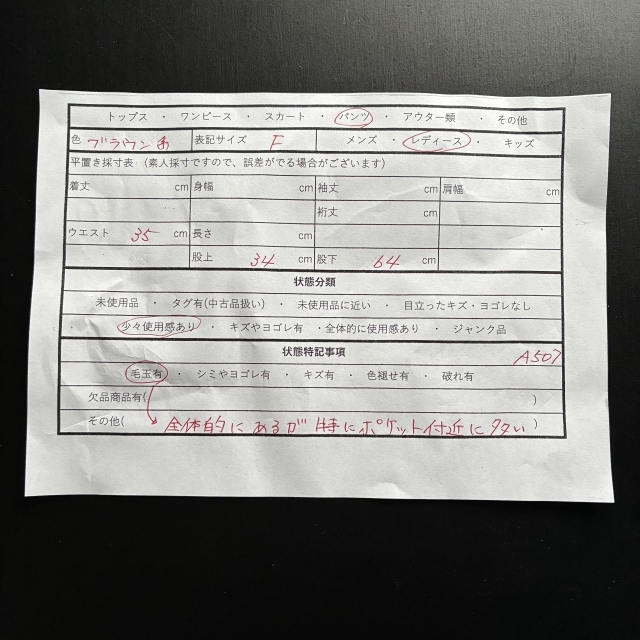 トップス ・ ワンピース ・ スカート ・ パンツ ・ アウター類 ・ その他
色 ブラウン系 表記サイズ F メンズ ・ レディース ・ キッズ
平置き採寸表 (素人採寸ですので、誤差がでる場合がございます)
着丈 cm 身幅 cm 袖丈 cm 肩幅 cm
裄丈 cm
ウエスト 35 cm 長さ cm
股上 34 cm 股下 64 cm
状態分類
未使用品 ・ タグ有(中古品扱い) ・ 未使用品に近い ・ 目立ったキズ・ヨゴレなし
・ 少々使用感あり ・ キズやヨゴレ有 ・全体的に使用感あり ・ ジャンク品
状態特記事項 A507
毛玉有 ・ シミやヨゴレ有 ・ キズ有 ・ 色褪せ有 ・ 破れ有
欠品商品有( )
その他( 全体的にあるが特にポケット付近に多い )